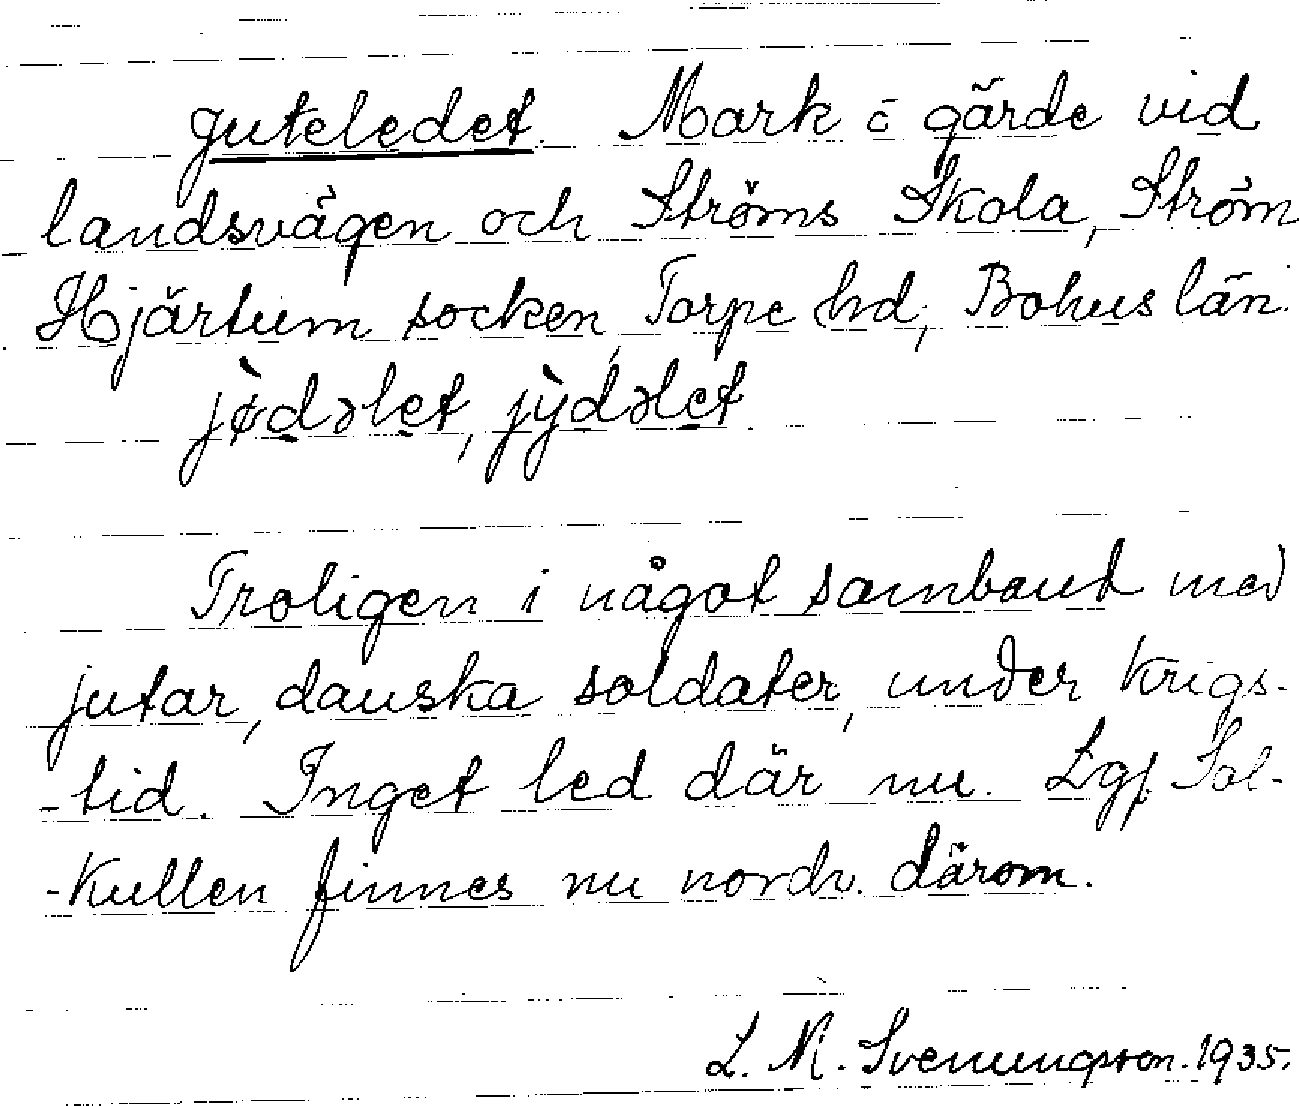 Juteledet. Mark o gärde vid
landsvägen och Ströms Skola, Ström
Hjärtum socken, Torpe hd, Bohus län.
jø̀dəlet, jỳdəlet
Troligen i något samband med
jutar, danska soldater, under krigs-
-tid. Inget led där nu. Lgf. Sol-
-kullen finnes nu nordv. därom.
L. M. Svenungsson. 1935.